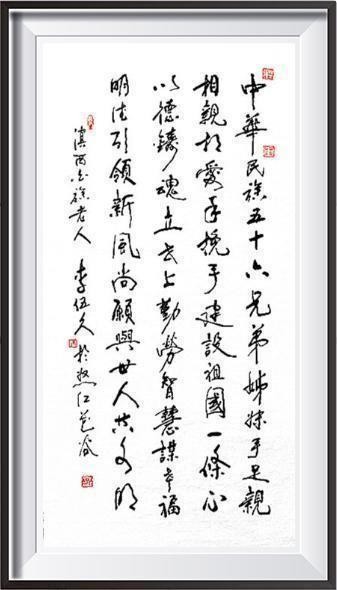 中華民族五十六兄弟姊妹手足親
相親相愛手挽手建設祖國一條心
以德鑄魂立志上勤勞智慧謀幸福
明法引領新風尚願與世人共文明
滇西白族老人 李伍久 於怒江